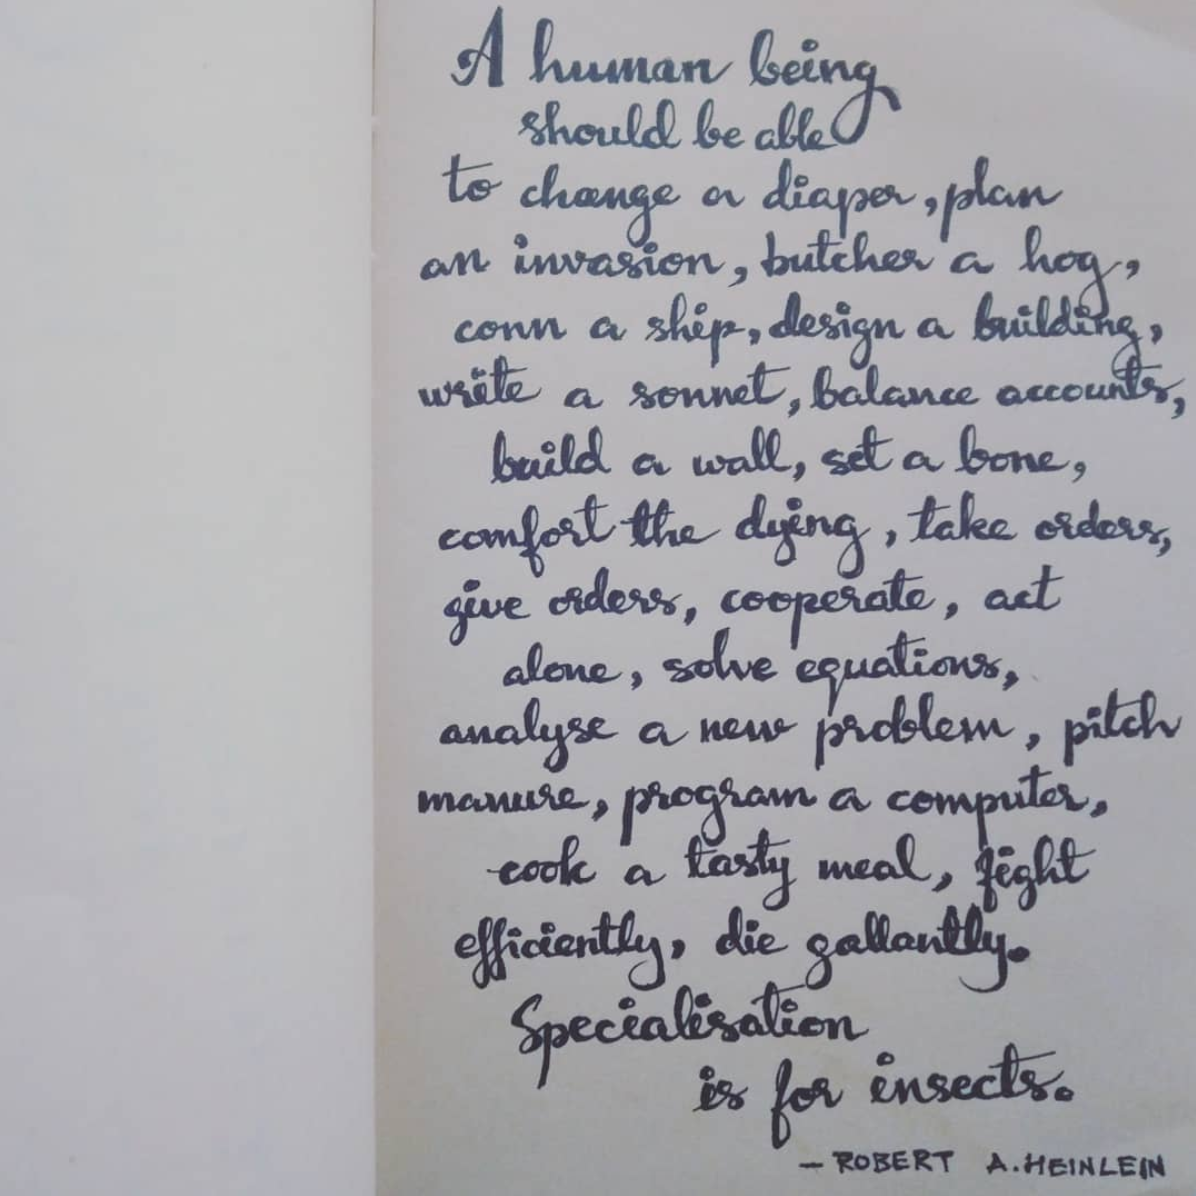 A human being
should be able
to change a diaper, plan
an invasion, butcher a hog,
conn a ship, design a building,
write a sonnet, balance accounts,
build a wall, set a bone,
comfort the dying, take orders,
give orders, cooperate, act
alone, solve equations,
analyse a new problem, pitch
manure, program a computer,
cook a tasty meal, fight
efficiently, die gallantly.
Specialisation
is for insects.
- ROBERT A. HEINLEIN